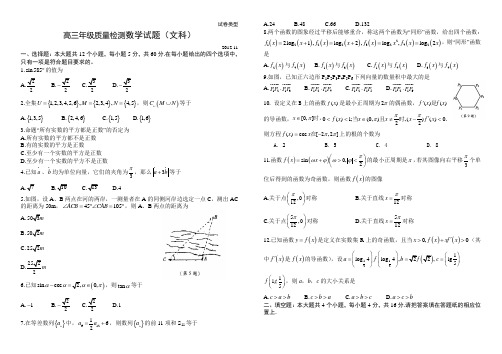 试卷类型
高三年级质量检测数学试题（文科）
2012.11
一、选择题：本大题共 12 个小题，每小题 5 分，共 60 分.在每小题给出的四个选项中，
只有一项是符合题目要求的.
1. sin 585° 的值为
2.全集 U = {1,2,3,4,5,6}, M = {2,3,4}, N = {4,5}，则 C_U (M ∪ N) 等于
A. {1,3,5} B. {2,4,6} C. {1,5} D. {1,6}
3.命题“所有实数的平方都是正数”的否定为
A.所有实数的平方都不是正数
B.有的实数的平方是正数
C.至少有一个实数的平方是正数
D.至少有一个实数的平方不是正数
4.已知 a、b 均为单位向量，它们的夹角为 π/3，那么 |a+3b| 等于
A. √7 B. √10 C. √13 D.4
5.如图，设 A、B 两点在河的两岸，一测量者在 A 的同侧河岸边选定一点 C，测出 AC
的距离为 50m，∠ACB = 45° ∠CAB = 105°，则 A、B 两点的距离为
A. 50√3 m
B. 50√2 m
C. 25√2 m
D. 25√2/2 m
（第 5 题）
6.已知 sin α − cos α = √2, α ∈ (0, π)，则 tan α 等于
A. −1 B. −√2/2 C. √2/2 D.1
7.在等差数列 {aₙ} 中，a₉ = 1/2 a₁₂ + 6，则数列 {aₙ} 的前 11 项和 S₁₁ 等于
A.24 B.48 C.66 D.132
8.两个函数的图象经过平移后能够重合，称这两个函数为“同形”函数，给出四个函数：
f₁(x) = 2log₂(x+1), f₂(x) = log₂(x+2), f₃(x) = log₂ x², f₄(x) = log₂(2x)，则“同形”函数
是
9.如图，已知正六边形 P₁P₂P₃P₄P₅P₆ 下列向量的数量积中最大的是
10. 设定义在 R 上的函数 f(x) 是最小正周期为 2π 的偶函数，f′(x) 是 f(x)
则方程 f(x) = cos x 在 [−2π, 2π] 上的根的个数为
A．2 B．3 C．4 D．8
11.函数 f(x) = sin(ωx + φ)(ω > 0, |φ| < π/2) 的最小正周期是 π，若其图像向右平移 π/3 个单
位后得到的函数为奇函数，则函数 f(x) 的图像
A.关于点 (π/12, 0) 对称 B.关于直线 x = π/12 对称
C.关于点 (5π/12, 0) 对称 D.关于直线 x = 5π/12 对称
12.已知函数 y = f(x) 是定义在实数集 R 上的奇函数，且当 x > 0, f(x) + xf′(x) > 0（其
A. c > a > b B. c > b > a C. a > b > c D. a > c > b
二、填空题：本大题共 4 个小题，每小题 4 分，共 16 分.请把答案填在答题纸的相应位
置上.